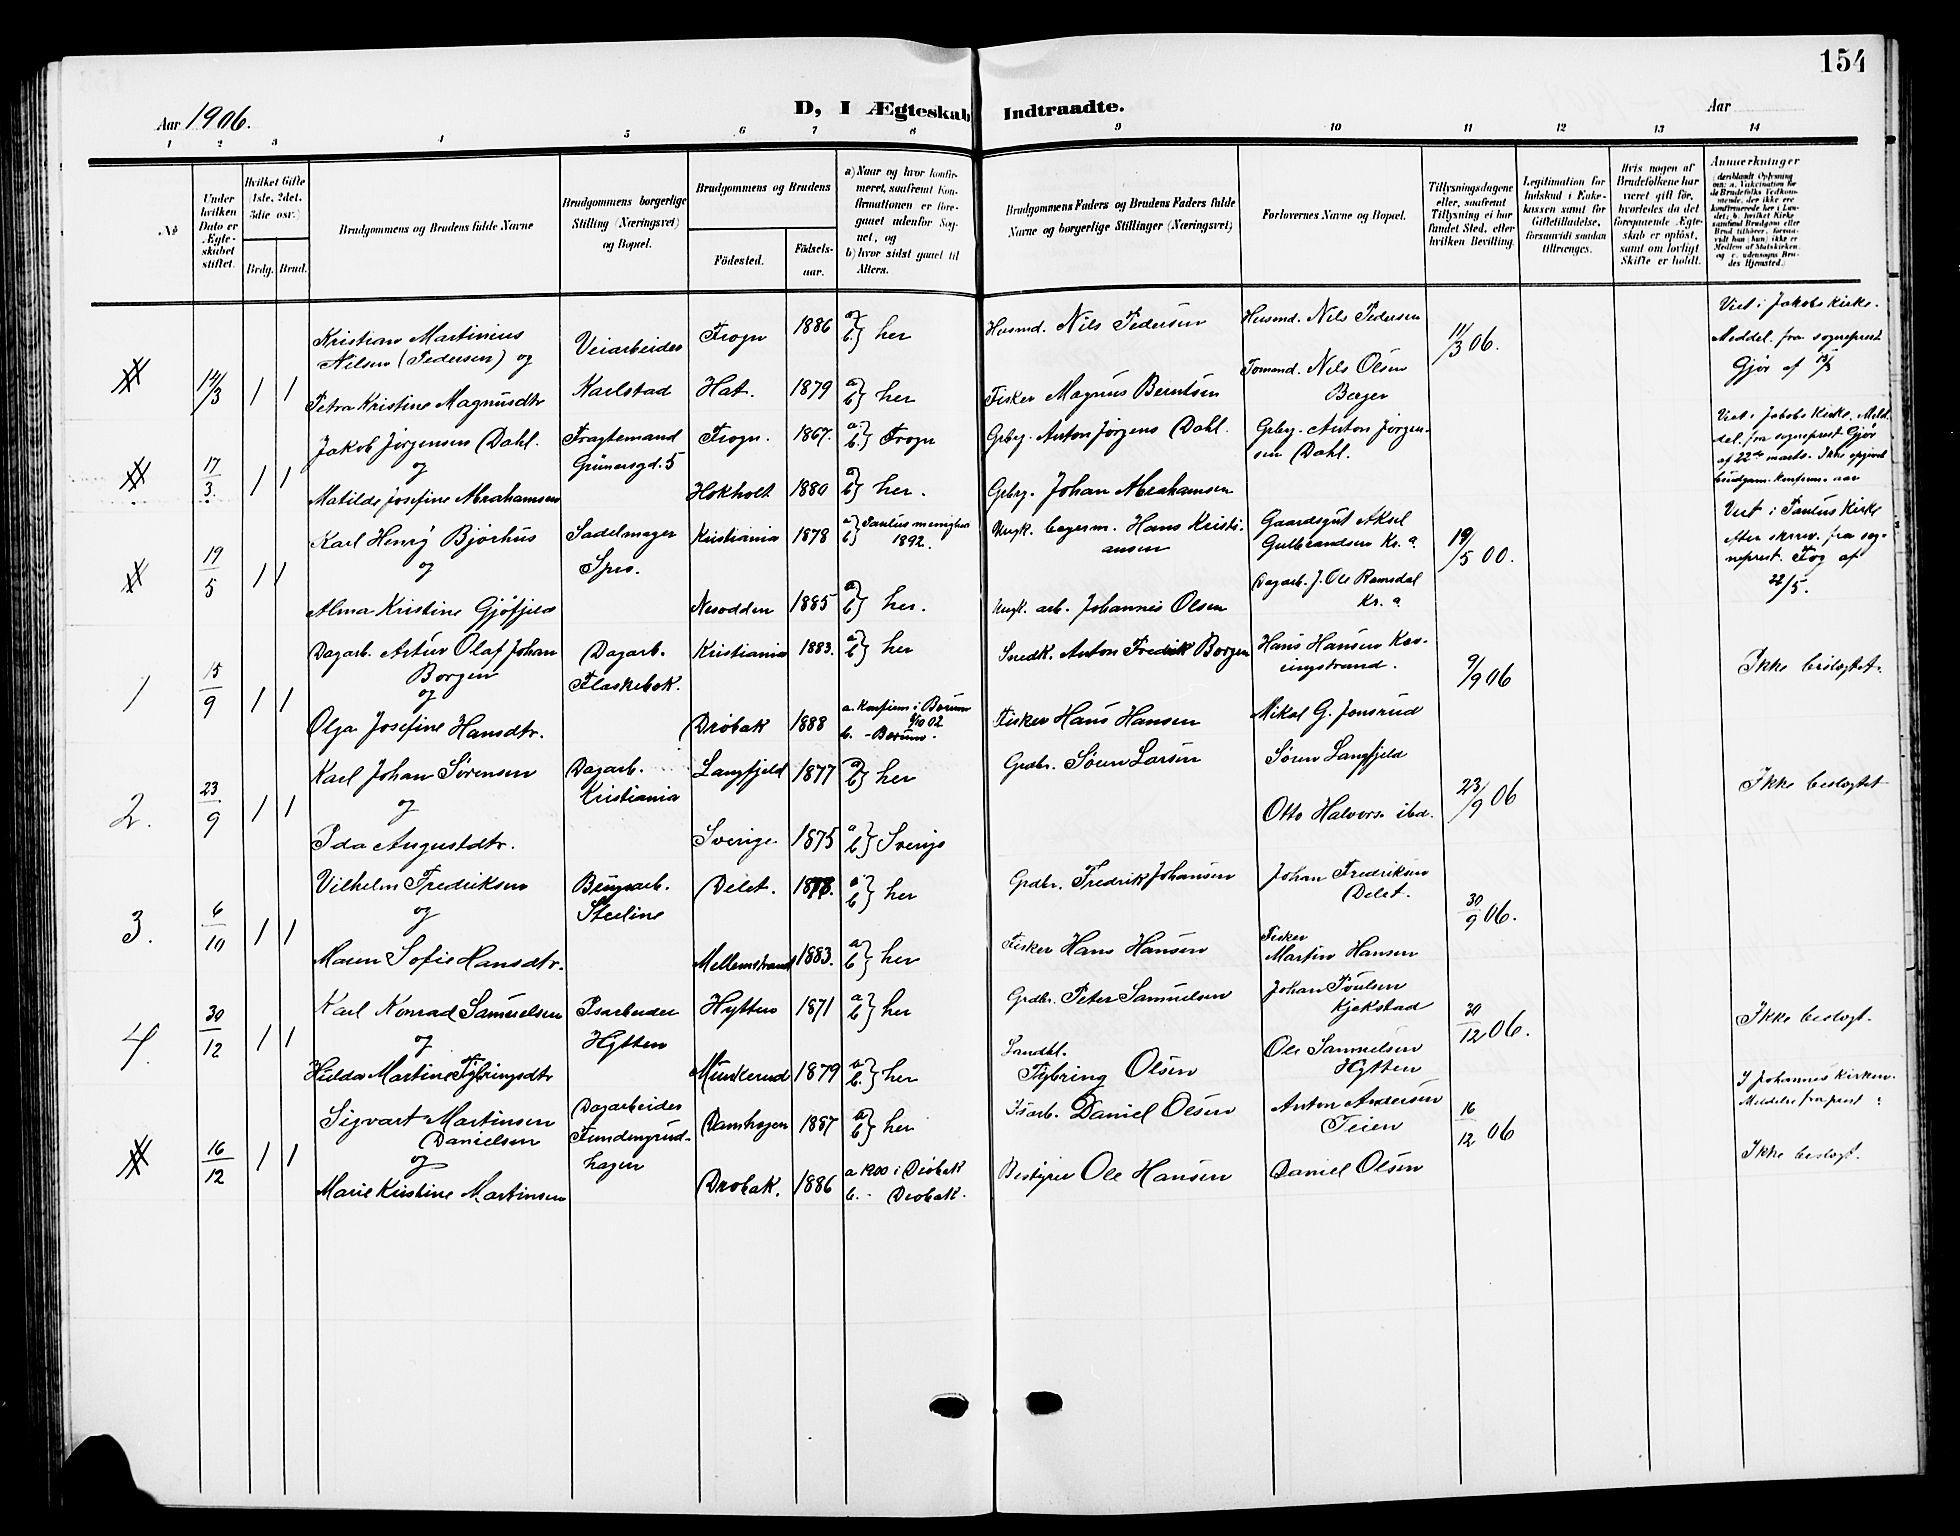 154
Aar 1906.
D, I Ægteskab Indtraadte.
Aar
1 2 3 4 5 6 7 8 9 10 11 12 13 14
No
Under hvilken Dato er Ægteskabet stiftet.
Hvilket Gifte (1ste, 2det, 3die osv.)
Brdg. Brud.
Brudgommens og Brudens fulde Navne
Brudgommens borgerlige Stilling (Næringsvei) og Bopæl.
Brudgommens og Brudens
Födested.
Födsels-aar.
a) Naar og hvor konfirmeret, saafremt Konfirmationen er foregaaet udenfor Sognet, og
b) hvor sidst gaaet til Alters.
Brudgommens Faders og Brudens Faders fulde Navne og borgerlige Stillinger (Næringsvei)
Forlovernes Navne og Bopæl.
Tillysningsdagene eller, saafremt Tillysning ei har fundet Sted, efter hvilken Bevilling.
Legitimation for Indskud i Enkekassen samt for Giftetilladelse, forsaavidt saadan tiltrænges.
Hvis nogen af Brudefolkene har været gift för, hvorledes da det foregaaende Ægteskab er oplöst, samt om lovligt Skifte er holdt.
Anmærkninger
14/3 1 1
Kristian Martinius
Nilsen (Pedersen) og
Veiarbeider
Frogn 1886 a b} her
Husmd. Nils Pedersen
Husmd. Nils Pedersen
11/3 06.
Viet i Jakobs Kirke.
Meddel. fra sogneprest
Gjør af
Petra Kristine Magnusdtr
Karlstad
Hat. 1879 a b} her
Fisker Magnus Berntsen
Tomand. Nils Olsen
Berger
17/3. 1 1
Jakob Jørgensen Dahl.
og
Fragtemand
Grünersgd. 5
Frogn. 1867. a b} Frogn
Grbrg. Anton Jørgens Dahl.
Grbrg. Anton Jørgen-
sen Dahl.
Viet i Jakobs Kirke. Med-
del. fra sogneprest Gjør
af 22de marts. Ikke opgivet
brudgom. konfirm. aar
Matilde Josefine Abrahamsen
Hokholt 1880 a b} her.
Grbrg. Johan Abrahamsen
19/5 1 1
Karl Henry Bjørhus
og
Sadelmager
Spro.
Kristiania 1878 a b} Paulus menighed
1892.
Hans Kristi-
ansen
Gaardsgut Aksel
Gulbrandsen Kr. a.
19/5 00.
Viet i Paulus Kirke
efter skriv. fra sog-
neprest. Fog af
22/5.
Alma Kristine Gjøfjeld
Nesodden 1885 a b} her.
Ungk. arb. Johannes Olsen
Dagarb. J. Ole Ramsdal
Kr. a.
1 15/9 1 1
Dagarb. Artur Olaf Johan
Borgen
og
Dagarb.
Flaskebek.
Kristiania 1883. a b} her
Snedk. Anton Fredrik Borgen
Hans Hansen Kav-
ringstrand.
9/9 06
Ikke beslægtet.
Olga Josefine Hansdtr.
Drøbak 1888
a. Konfirm i Bærum
6/10 02
b. - Bærum.
Fisker Hans Hansen
Nikol G. Jonsrud
2. 23/9 1 1
Karl Johan Sørensen
og
Dagarb.
Kristiania
Langfjeld 1877 a b} her
Grdbr. Søren Larsen
Søren Langfjeld
23/9 06
Ikke beslægtet
Ida Augustdtr.
Sverige 1875 a b} Sverige
Otto Halvors. ibd.
3. 6/10 1 1
Vilhelm Fredriksen
og
Steiline
Delet. a b} her
Grdbr. Fredrik Johansen
Johan Fredriksen
Delet.
30/9 06.
Maren Sofie Hansdtr.
Mellemstrand 1883. a b} her
Fisker Hans Hansen
Fisker
Martin Hansen
4. 30/12 1 1
Karl Konrad Samuelsen
og
Isarbeider
Hytten
Hytten 1871 a b} her
Grdbr. Peter Samuelsen
Johan Poulsen
Kjekstad
30/12 06.
Ikke beslegt.
Hulda Martine Thybringsdtr
Munkerud 1879 a b.} her
Landhl.
Thybring Olsen
Ole Samuelsen
Hytten
16/12 1 1
Sigvart Martinsen
Danielsen
og
Dagarbeider
Fundingrud-
hagen
Damhagen 1887 a b} her
Isarb. Daniel Olsen
Anton Andersen
Teien
16/12 06
I Johannes Kirken.
Meldelse fra prest
Ikke beslegt.
Marie Kirstine Martinsen
Drøbak. 1886
a 1900 i Drøbak
b. - Drøbak.
Bestyrer Ole Hansen
Daniel Olsen